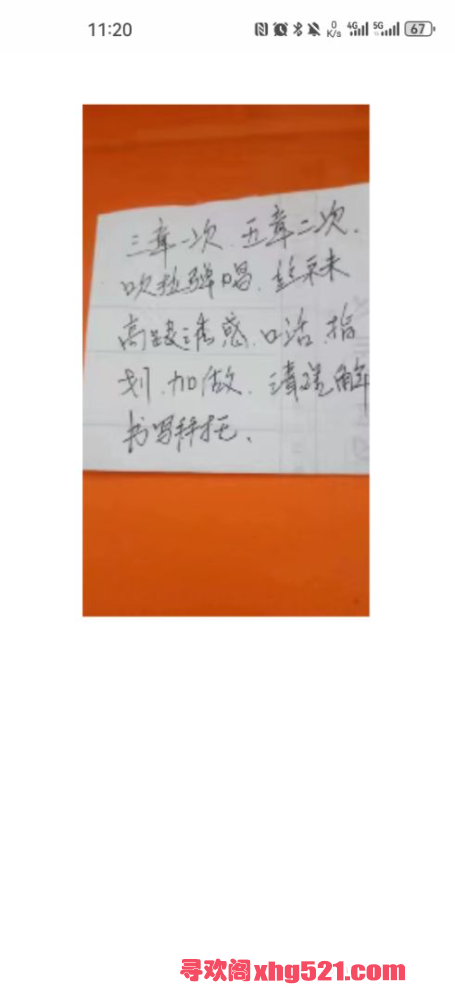 11:20
0 K/s 4G 5G 67
三章一次.五章二次.
吹拉弹唱.丝袜
高跟诱惑.口活.指
划.加做.清理解
书写拜托.
寻欢阁xhg521.com